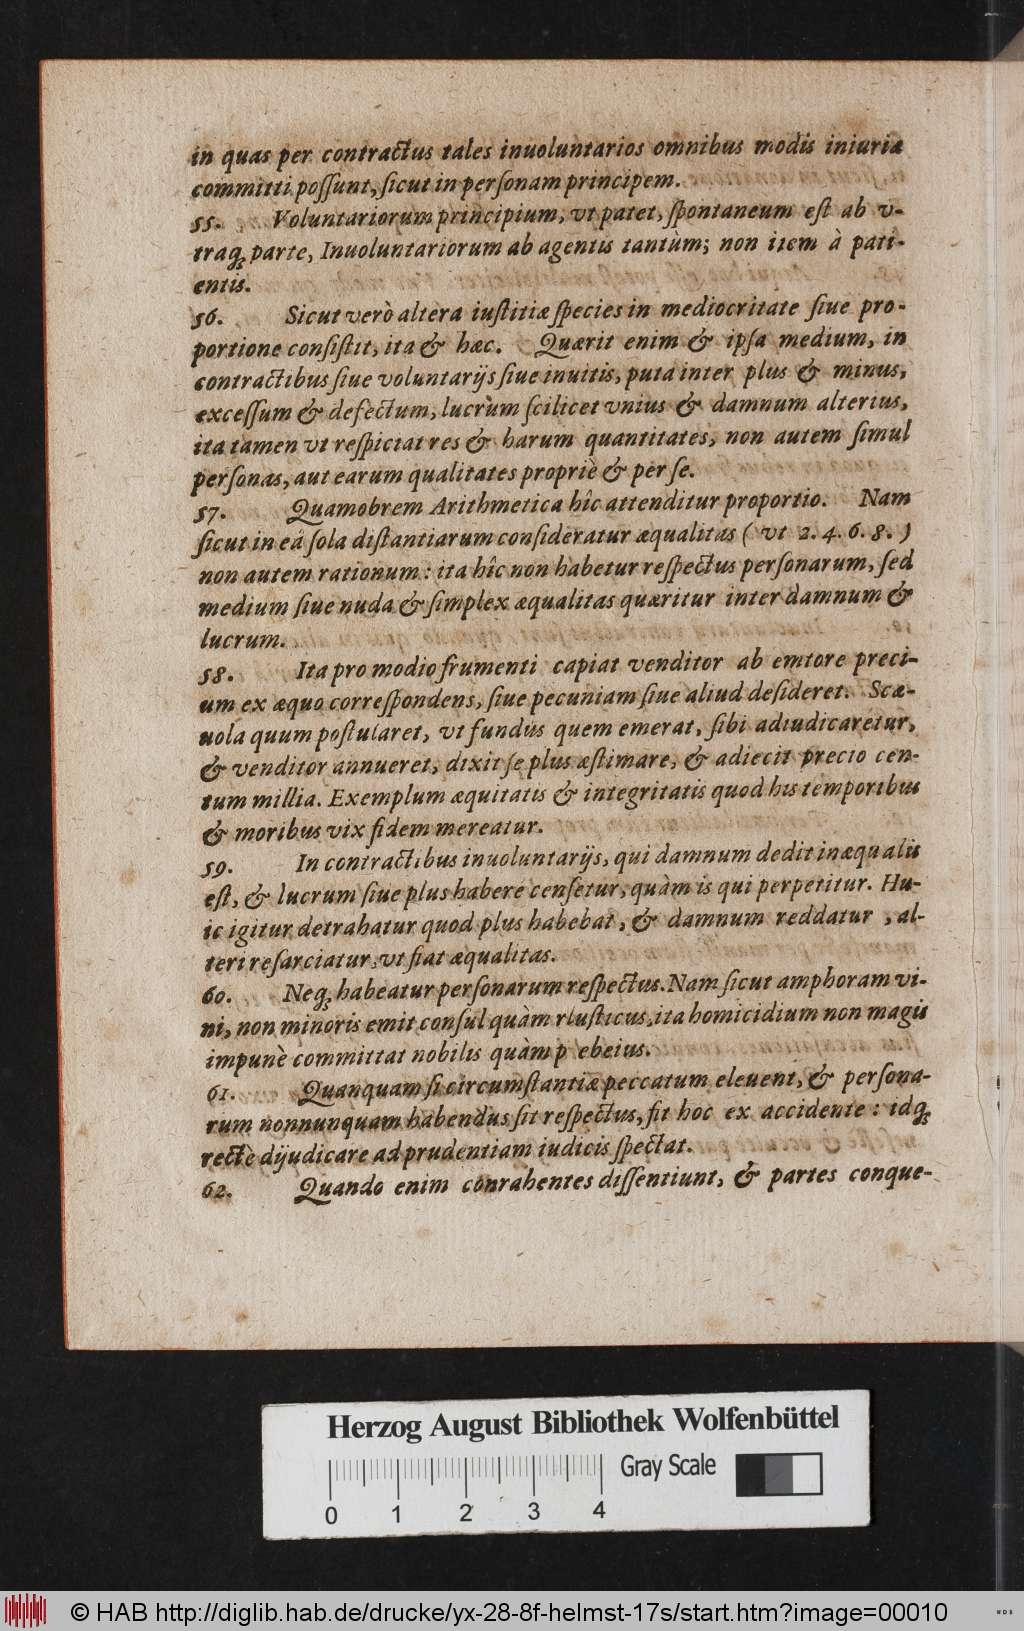 in quas per contractus tales inuoluntarios omnibus modis iniuriæ
committi poſſunt, ſicut in perſonam principem.
55. Voluntariorum principium, vt patet, ſpontaneum eſt ab v-
traq; parte, Inuoluntariorum ab agentis tantùm; non item à pati-
entis.
56. Sicut verò altera iuſtitiæ ſpecies in mediocritate ſiue pro-
portione conſiſtit, ita & hæc. Quærit enim & ipſa medium, in
contractibus ſiue voluntarijs ſiue inuitis, puta inter plus & minus,
exceſſum & defectum, lucrùm ſcilicet vnius & damnum alterius,
ita tamen vt reſpiciat res & harum quantitates, non autem ſimul
perſonas, aut earum qualitates propriè & per ſe.
57. Quamobrem Arithmetica hîc attenditur proportio. Nam
ſicut in eâ ſola diſtantiarum conſideratur æqualitas ( vt 2. 4. 6. 8. )
non autem rationum: ita hîc non habetur reſpectus perſonarum, ſed
medium ſiue nuda & ſimplex æqualitas quæritur inter damnum &
lucrum.
58. Ita pro modio frumenti capiat venditor ab emtore preci-
um ex æquo correſpondens, ſiue pecuniam ſiue aliud deſideret. Scæ-
uola quum poſtularet, vt fundus quem emerat, ſibi adiudicaretur,
& venditor annueret, dixit ſe plus æſtimare, & adiecit precio cen-
tum millia. Exemplum æquitatis & integritatis quod his temporibus
& moribus vix fidem mereatur.
59. In contractibus inuoluntarijs, qui damnum dedit inæqualis
eſt, & lucrum ſiue plus habere cenſetur, quàm is qui perpetitur. Hu-
ic igitur detrahatur quod plus habebat, & damnum reddatur , al-
teri reſarciatur, vt fiat æqualitas.
60. Neq; habeatur perſonarum reſpectus. Nam ſicut amphoram vi-
ni, non minoris emit conſul quàm rluſticus, ita homicidium non magis
impunè committat nobilis quàm p ebeius.
61. Quanquam ſi circumſtantiæ peccatum eleuent, & perſona-
rum nonnunquam habendus ſit reſpectus, fit hoc ex accidente : idq;
rectè dijudicare ad prudentiam iudicis ſpectat.
62. Quando enim conrahentes diſſentiunt, & partes conque-
Herzog August Bibliothek Wolfenbüttel
Gray Scale
0 1 2 3 4
© HAB http://diglib.hab.de/drucke/yx-28-8f-helmst-17s/start.htm?image=00010